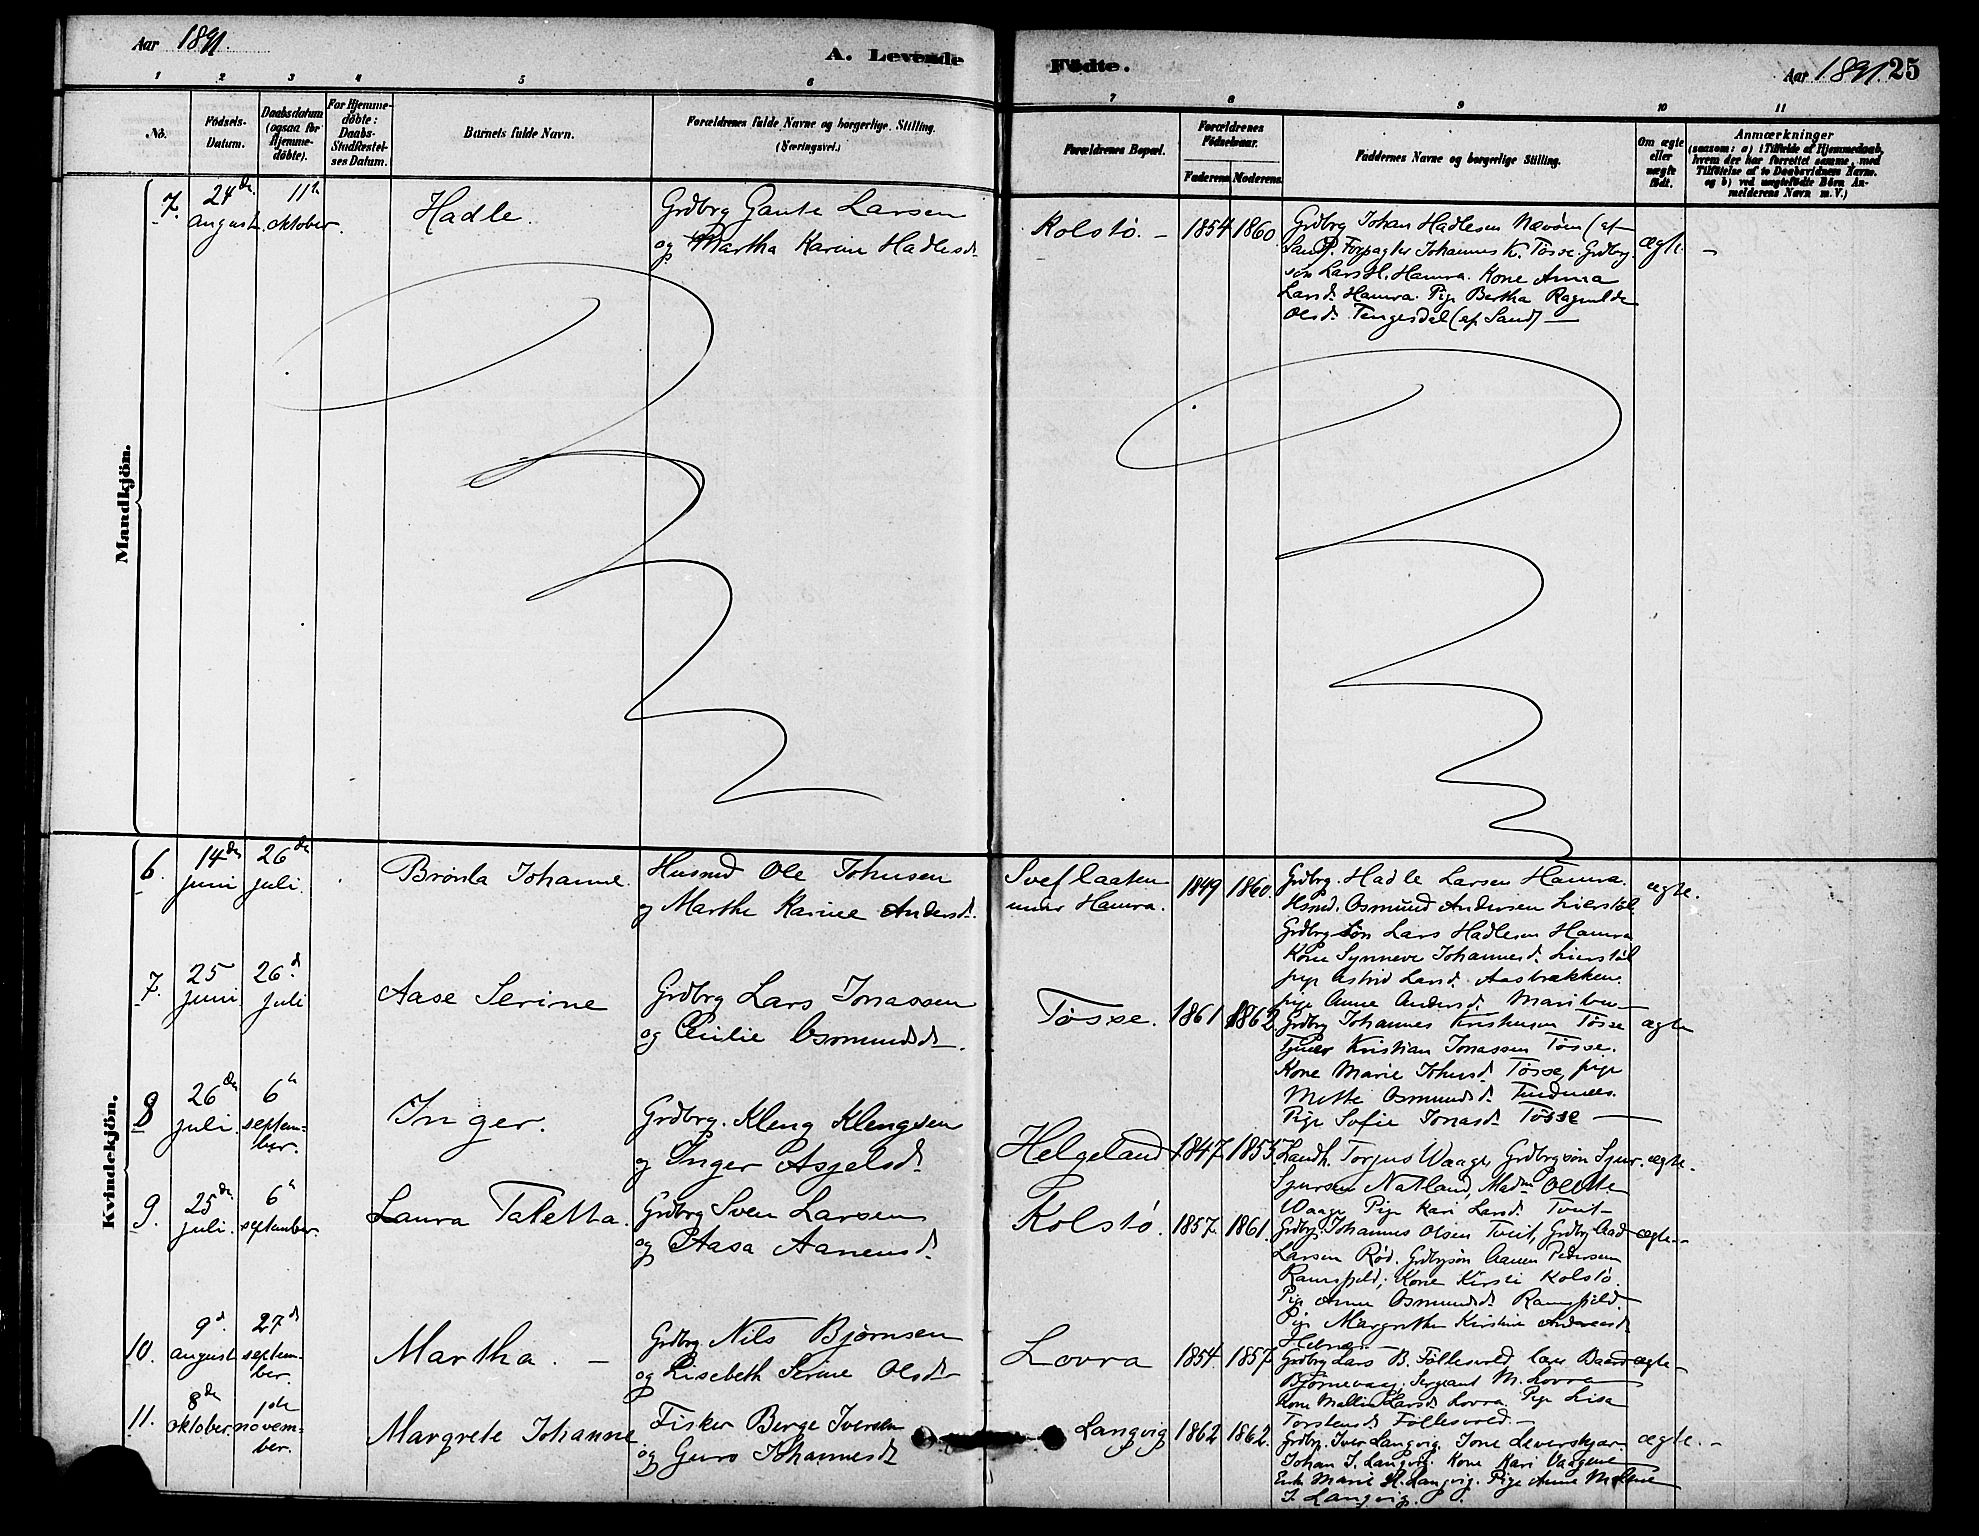 Aar 1891.
A. Levende Fødte.
Aar 1891. 25
1 2 3 4 5 6 7 8 9 10 11
No.
Fødsels-
Datum.
Daabsdatum
(ogsaa for
Hjemme-
døbte).
For Hjemme-
døbte:
Daabs-
Stadfæstel-
ses Datum.
Barnets fulde Navn.
Forældrenes fulde Navne og borgerlige Stilling.
(Næringsvei.)
Forældrenes Bopæl.
Forældrenes
Fødselsaar.
Faderens Moderens.
Faddernes Navne og borgerlige Stilling.
Om ægte
eller
uægte
født.
Anmærkninger
(saasom: a) i Tilfælde af Hjemmedaab,
hvem der har forrettet samme, med
Tilføielse af to Daabsvidners Navne.
og b) ved uægtefødte Børn An-
melderens Navn m. V.)
Mandkjön.
7. 24de august. 11te oktober. Hadle.
Grdbrg Gaute Larsen
og Martha Karine Hadlesd.
Kolstö. – 1854 1860
Grdbrg Johan Hadlesen Nævöen (af
Sand). Forpagter Johannes K. Tösse. Grdbrg.
sön Lars H. Hamra. Kone Anna
Larsd. Hamra. Pige Bertha Ragnilda
Olsd. Tengesdal (af Sand) –
ægte. –
Kvindekjön.
6. 14de juni 26de juli. Brönla Johanne.
Husmd Ole Johnsen
og Marthe Karine Andersd.
under Hamra. 1849 1860.
Grdbrg. Hadle Larsen Hamra.
Hsmd. Osmund Andersen Lierstöl.
Grdbrg Sön Lars Hadlesen Hamra
Kone Synneve Johannesd. Lierstöl
pige Astrid Larsd. Aasbrækken.
pige Anne Andersd.
ægte.
7. 25 juni. 26.d juli Aase Serine
Grdbrg Lars Jonassen
og Cecilie Osmundsd.
Tösse. 1861 1862
Grdbrg Johannes Kristensen Tösse
Kristian Jonassen Tösse.
Kone Marie Johnsd. Tösse, pige
Mette Osmundsd.
Pige Sofie Jonasd. Tösse –
ægte
8 26de juli. 6te septem-
ber. Inger.
Grdbrg. Kleng Klengsen
og Inger Asgelsd.
Helgeland 1847 1853.
Landh. Torjus Waage, Grdbrgsön Sjur
Sjursen Natland, Madm Olette
Waage Pige Kari Larsd. Tveit –
ægte.
9. 25de juli. 6te september. Laura Taletta.
Grdbrg Sven Larsen
og Aasa Aanensd.
Kolstö. 1857. 1861.
Grdbrg. Johannes Olsen Tveit, Grdbrg Aad
Larsen Röd. Grdbrgsön Aanen Pedersen
Ramsfjeld; Kone Kirsti Kolstö.
Pige Anna Osmundsd. Ramsfjeld.
Pige Margrethe Kirstine Andreasd.
Hebnes. –
ægte. –
10. 9d. august 27d septem-
ber. Martha. –
Grdbrg. Nils Bjørnsen
og Lisebeth Serine Olsd.
Lovra 1854. 1857
Grdbrg Lars B. Föllesvold, lærer Baard
Bjørnevaag. Sergeant M. Lovra
Kone Malli Larsd. Lovra. Pige Lisa
Torstensd. Föllesvold. –
ægte –
11. 8de oktober. 1ste novem-
ber. Margrete Johanne
Fisker Berge Iversen
og Guro Johannesd.
Langvig 1862 1862.
Grdbrg. Iver Langvig. Jone
Johan I. Langvig. Kone Kari Vaagene
Enk. Marie H. Langvig. Pige Anne Malene
I. Langvig.
ægte. –